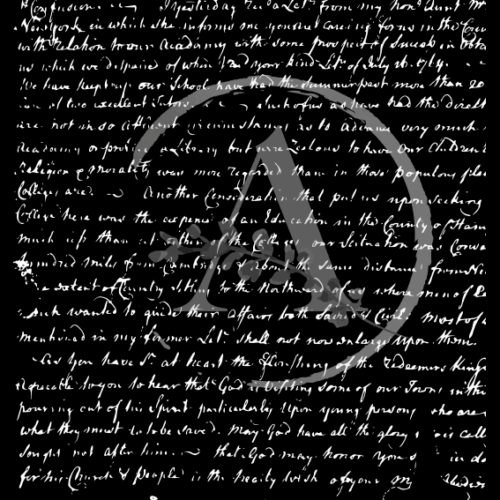 Confusions I yesterday reca Letr from my honr Aunt Mr
Newyork in which she informs one
with relation to our Academy with some prospect of Success in obta
us which we despaired of when I had your kind Letr of July 16. 1764.
We have kept up our School have had the summer past more than 20
two excellent Tutors. such of us as have had the direct
are not in so difficult circumstances as to advance very much
Academy or provide a Library but were Zealous to have our Children
Religion & Morality was more regarded than in those populous place
Colleges are. Another Consideration that put us upon seeking
College here was the expence of an Education in the County of Ham
much less than at either of the Colleges our Scituation was Conve
hundred miles from Cambridge & about the same distance from N
extent of Country Setling to the Northward of us where men of L
such wanted to guide their affairs both Sacred & Civil. most of
mentioned in my former Letr shall not now enlarge upon them.
As you have Sr. at heart the flourishing of the Redeemers Kingd
agreeable to you to hear that God is visiting some of our Towns in th
pouring out of his Spirit particularly upon young persons who are
what they must do to be saved. May God have all the glory is call
sought not after him. that God may honor you in do
for his Church & People is the hearty wish of your My